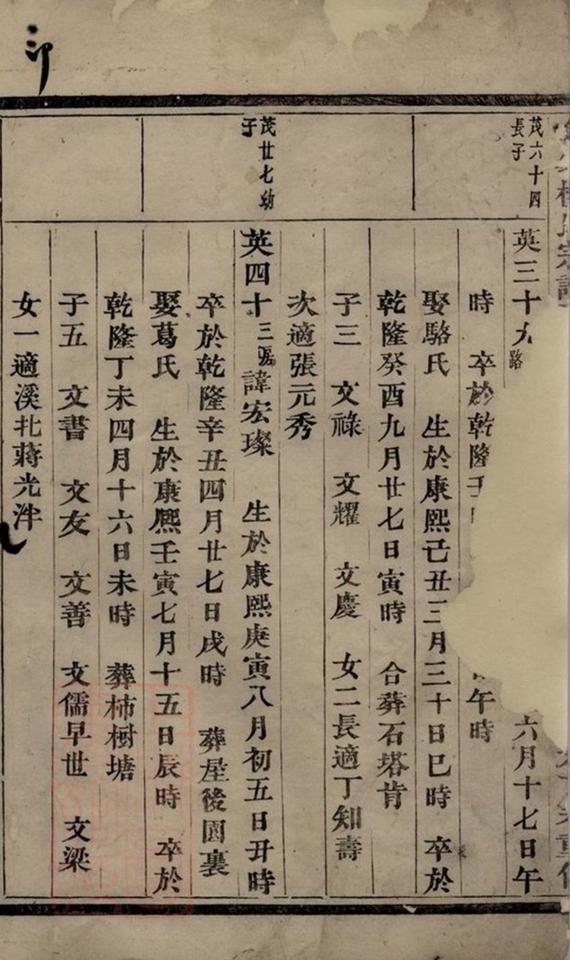 茂六十四
長子
英三十九路 六月十七日午
時 卒於乾隆壬 午時
娶駱氏 生於康熙己丑三月三十日巳時 卒於
乾隆癸酉九月廿七日寅時 合葬石塔肯
子三 文祿 文耀 文慶 女二長適丁知壽
次適張元秀
茂廿七幼
子
英四十三 諱宏璨 生於康熙庚寅八月初五日丑時
卒於乾隆辛丑四月廿七日戌時 葬屋後園裏
娶葛氏 生於康熙壬寅七月十五日辰時 卒於
乾隆丁未四月十六日未時 葬柿樹塘
子五 文書 文友 文善 文儒早世 文梁
女一適溪北蔣光泮